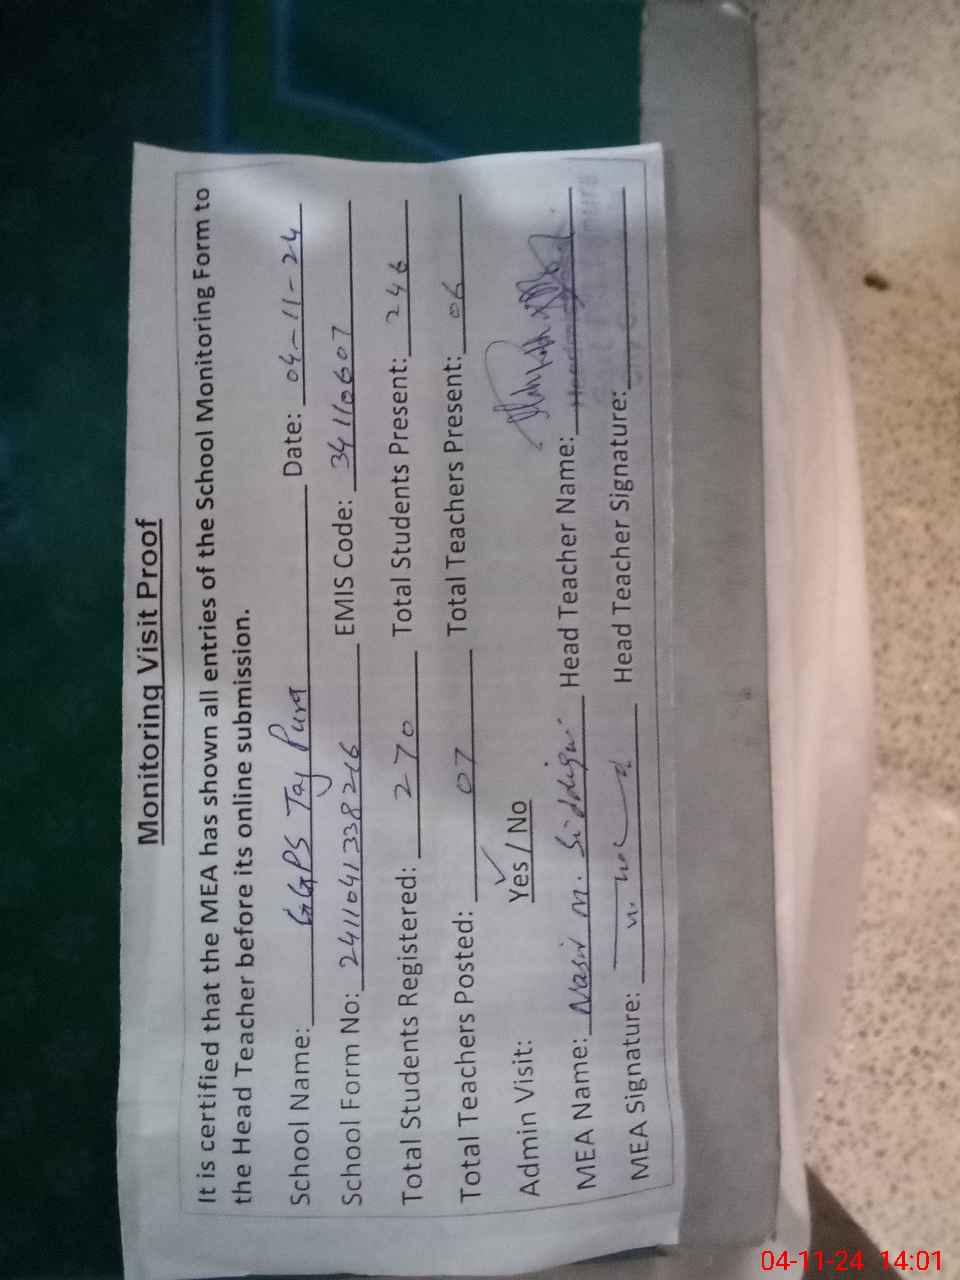 Monitoring Visit Proof
It is certified that the MEA has shown all entries of the School Monitoring Form to
the Head Teacher before its online submission.
School Name: GGPS Taj Pura Date: 04-11-24
School Form No: 2411041338216 EMIS Code: 34110607
Total Students Registered: 270 Total Students Present: 246
Total Teachers Posted: 07 Total Teachers Present: 06
Admin Visit: Yes / No
MEA Name: Nasir M. Siddiqui Head Teacher Name:
MEA Signature: Head Teacher Signature:
04-11-24 14:01